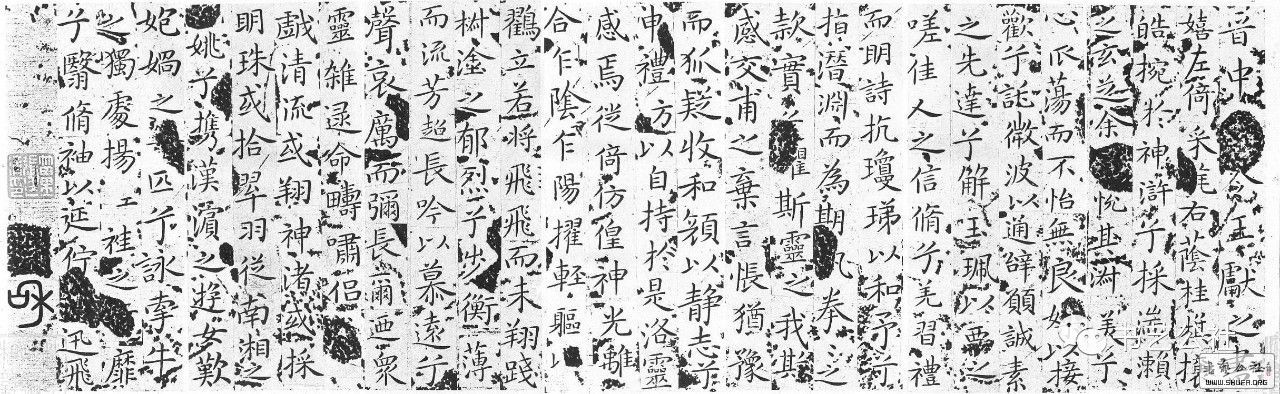 晋中令王獻之
嬉左倚采旄右蔭桂旗攘
皓捥於神滸兮採湍瀨
之玄芝余悅其淑美兮
心振蕩而不怡無良以接
歡兮託微波以通辝願誠素
之先達兮解玉珮以要之
嗟佳人之信脩兮羌習禮
而明詩抗瓊珶以和予兮
指潛淵而為期執拳之
款實懼斯靈之我欺
感交甫之棄言悵猶豫
而狐疑收和顏以静志兮
申禮防以自持於是洛靈
感焉徙倚仿偟神光離
合乍陰乍陽擢輕軀以
鶴立若將飛飛而未翔踐
椒塗之郁烈兮步衡薄
而流芳超長吟以慕遠兮
聲哀厲而彌長爾迺衆
靈雜遝命疇嘯侶
戲清流或翔神渚或採
明珠或拾翠羽從南湘之
姚兮攜漢濱之遊女歎
妑媧之無匹兮詠牽牛
之獨處揚輕袿之靡
兮翳脩袖以延佇迅飛
WWW.SHUFA.ORG